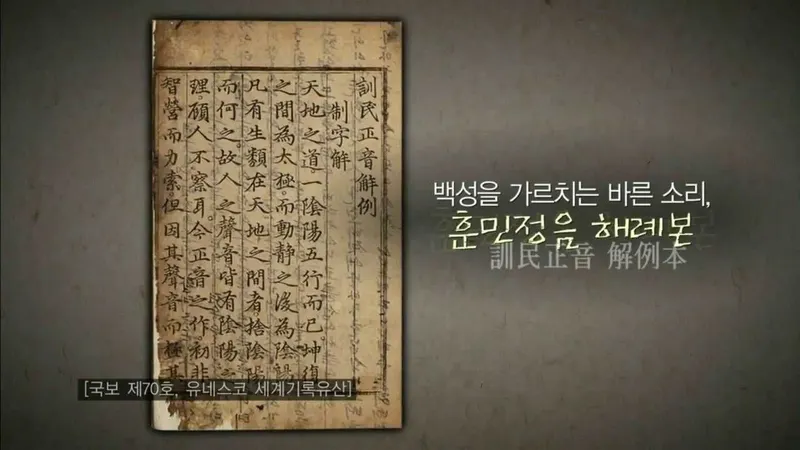 訓民正音解例
制字解
天地之道。一陰陽五行而已。坤復
之間為太極。而動靜之後為陰陽
凡有生類在天地之間者。捨陰陽
而何之。故人之聲音皆有陰陽之
理。顧人不察耳。今正音之作。初非
智營而力索。但因其聲音而極其
백성을 가르치는 바른 소리,
훈민정음 해례본
訓民正音 解例本
[국보 제70호, 유네스코 세계기록유산]